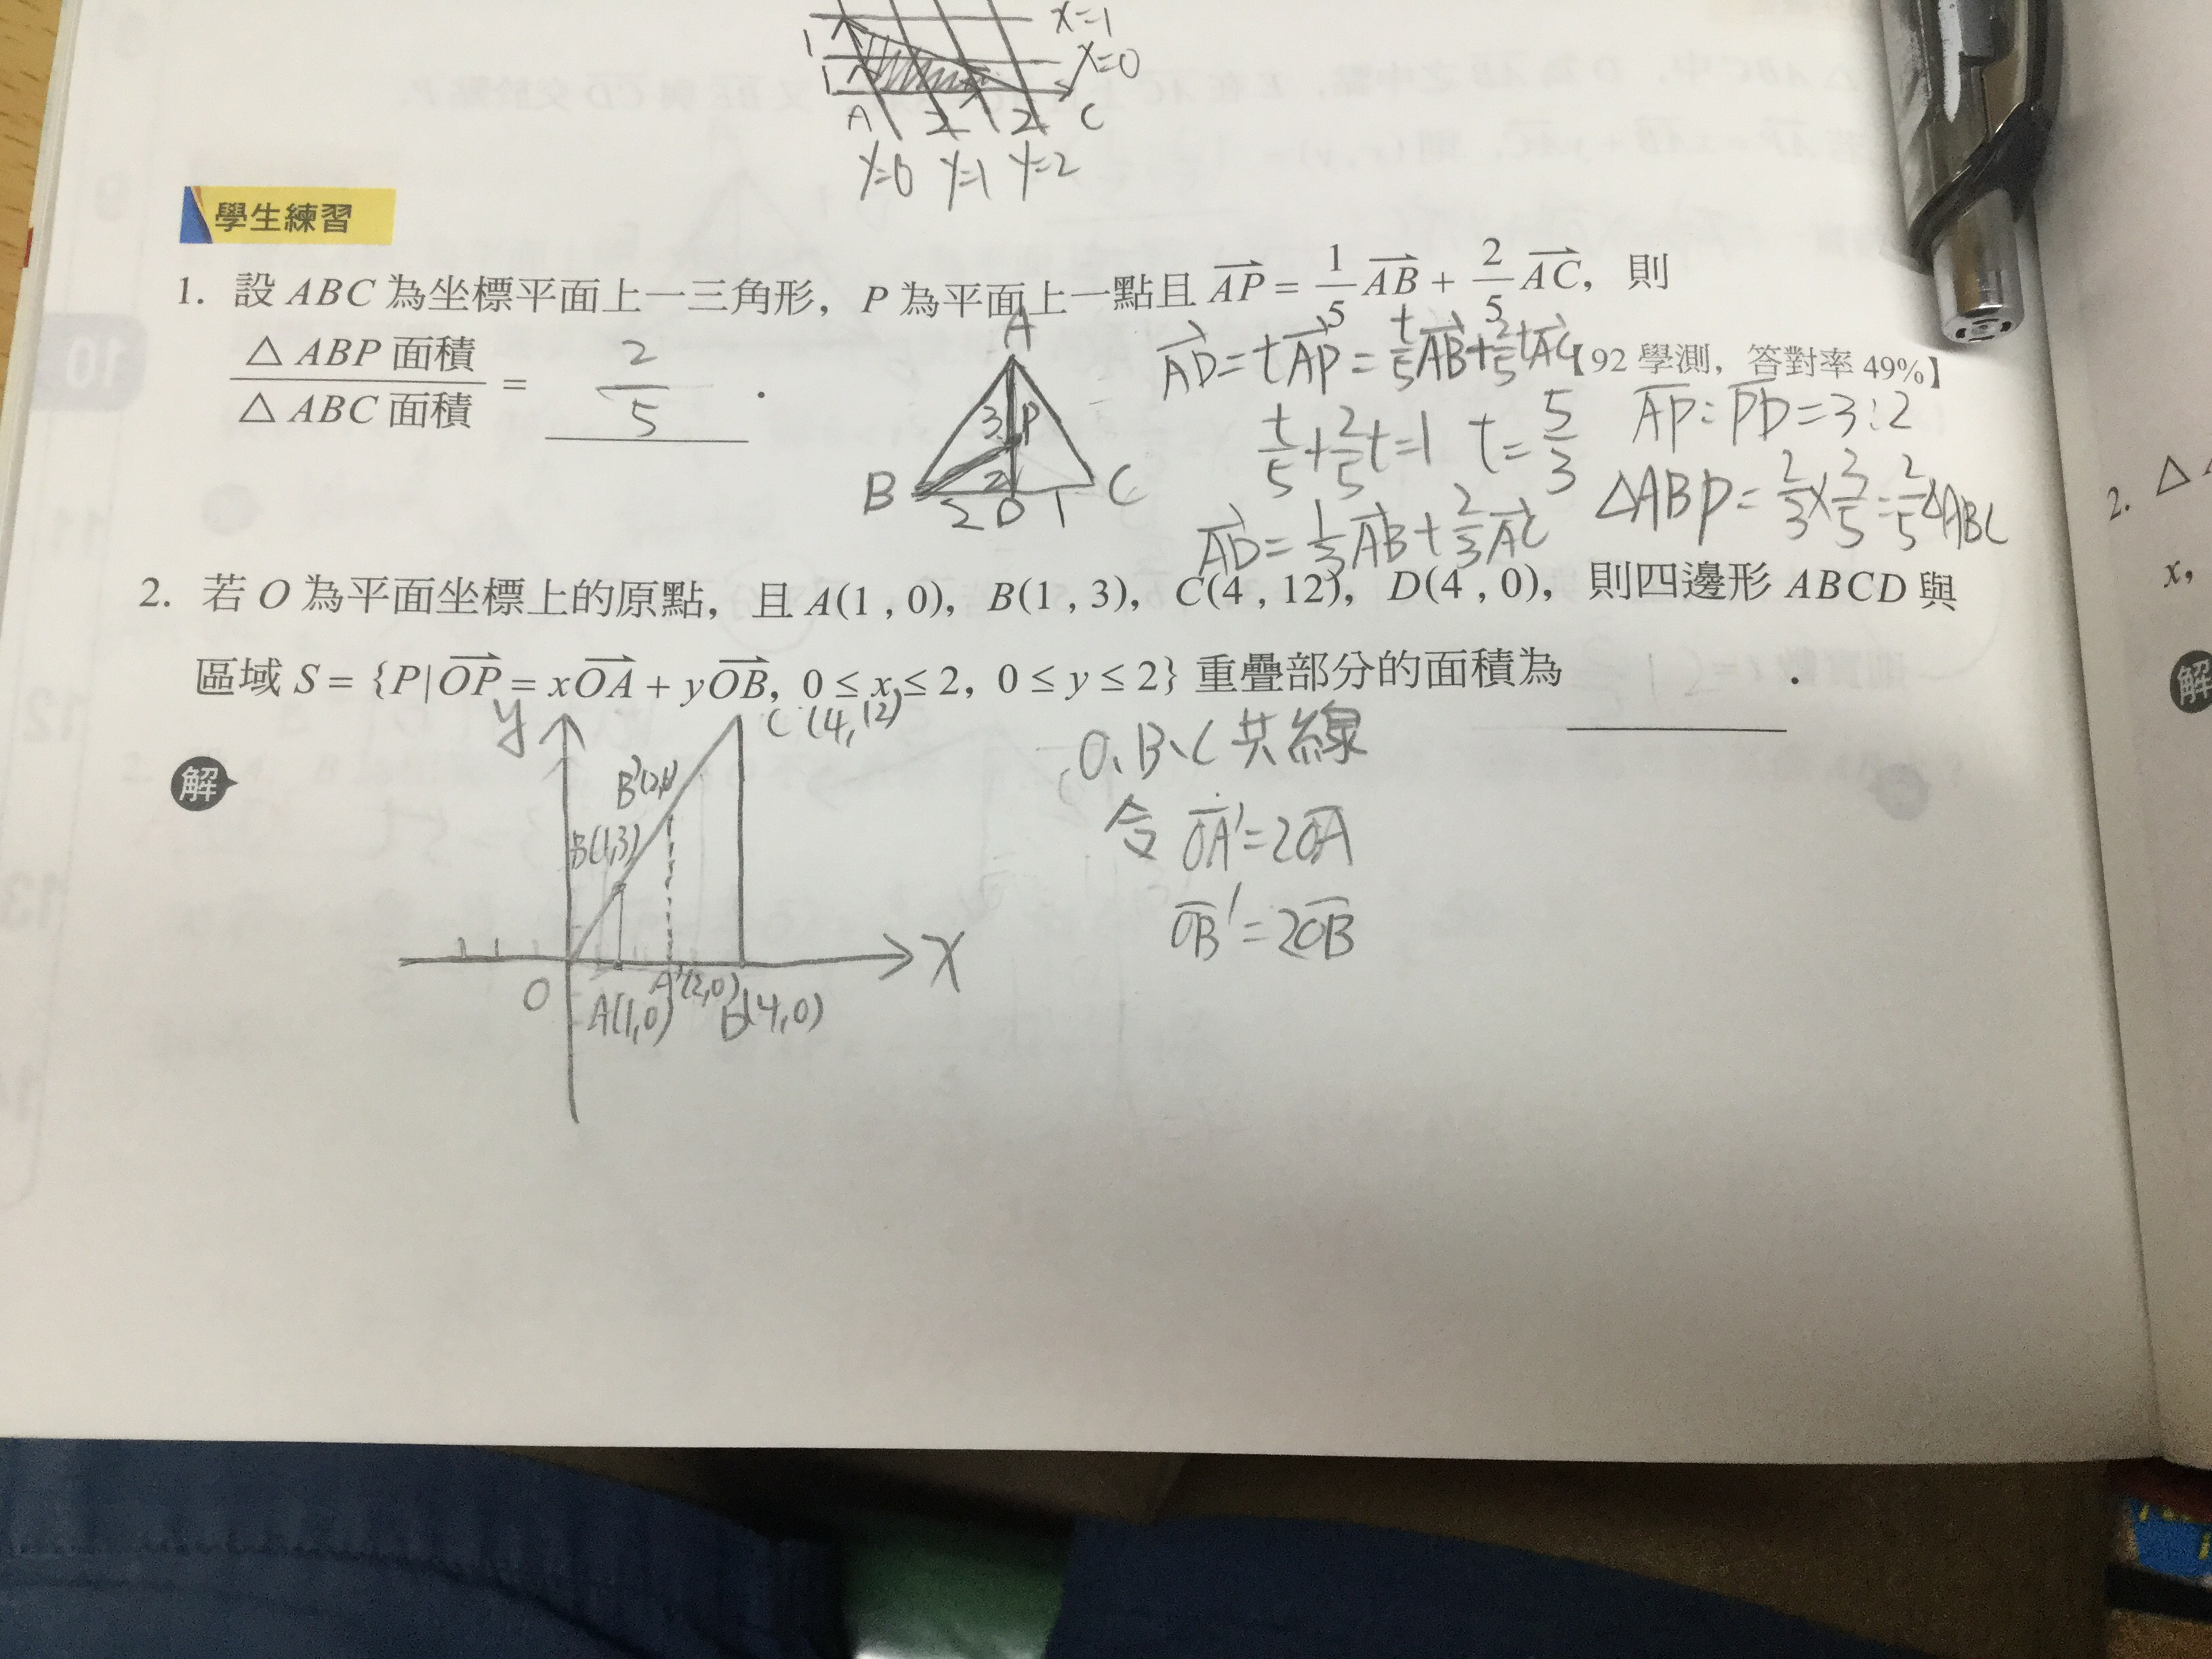 x=1
1
x=0
1
A 2 2 C
y=0 y=1 y=2
學生練習
1. 設 ABC 為坐標平面上一三角形，P 為平面上一點且 AP = 1/5 AB + 2/5 AC，則
△ABP 面積 / △ABC 面積 = 2/5 .
【92 學測，答對率 49%】
A
3 P
2
B 2 D 1 C
AD = tAP = t/5 AB + 2/5 tAC
t/5 + 2/5 t = 1 t = 5/3
AP : PD = 3 : 2
AD = 1/3 AB + 2/3 AC
△ABP = 2/3 × 3/5 = 2/5 △ABC
2. 若 O 為平面坐標上的原點，且 A(1 , 0)，B(1 , 3)，C(4 , 12)，D(4 , 0)，則四邊形 ABCD 與
區域 S = {P|OP = xOA + yOB, 0 ≤ x ≤ 2, 0 ≤ y ≤ 2} 重疊部分的面積為 .
解
y
C (4,12)
B(1,3)
O
A(1,0)
A'(2,0)
D(4,0)
X
O、B、C 共線
令 OA' = 2OA
OB' = 2OB
10
11
12
13
2. △
x,
解